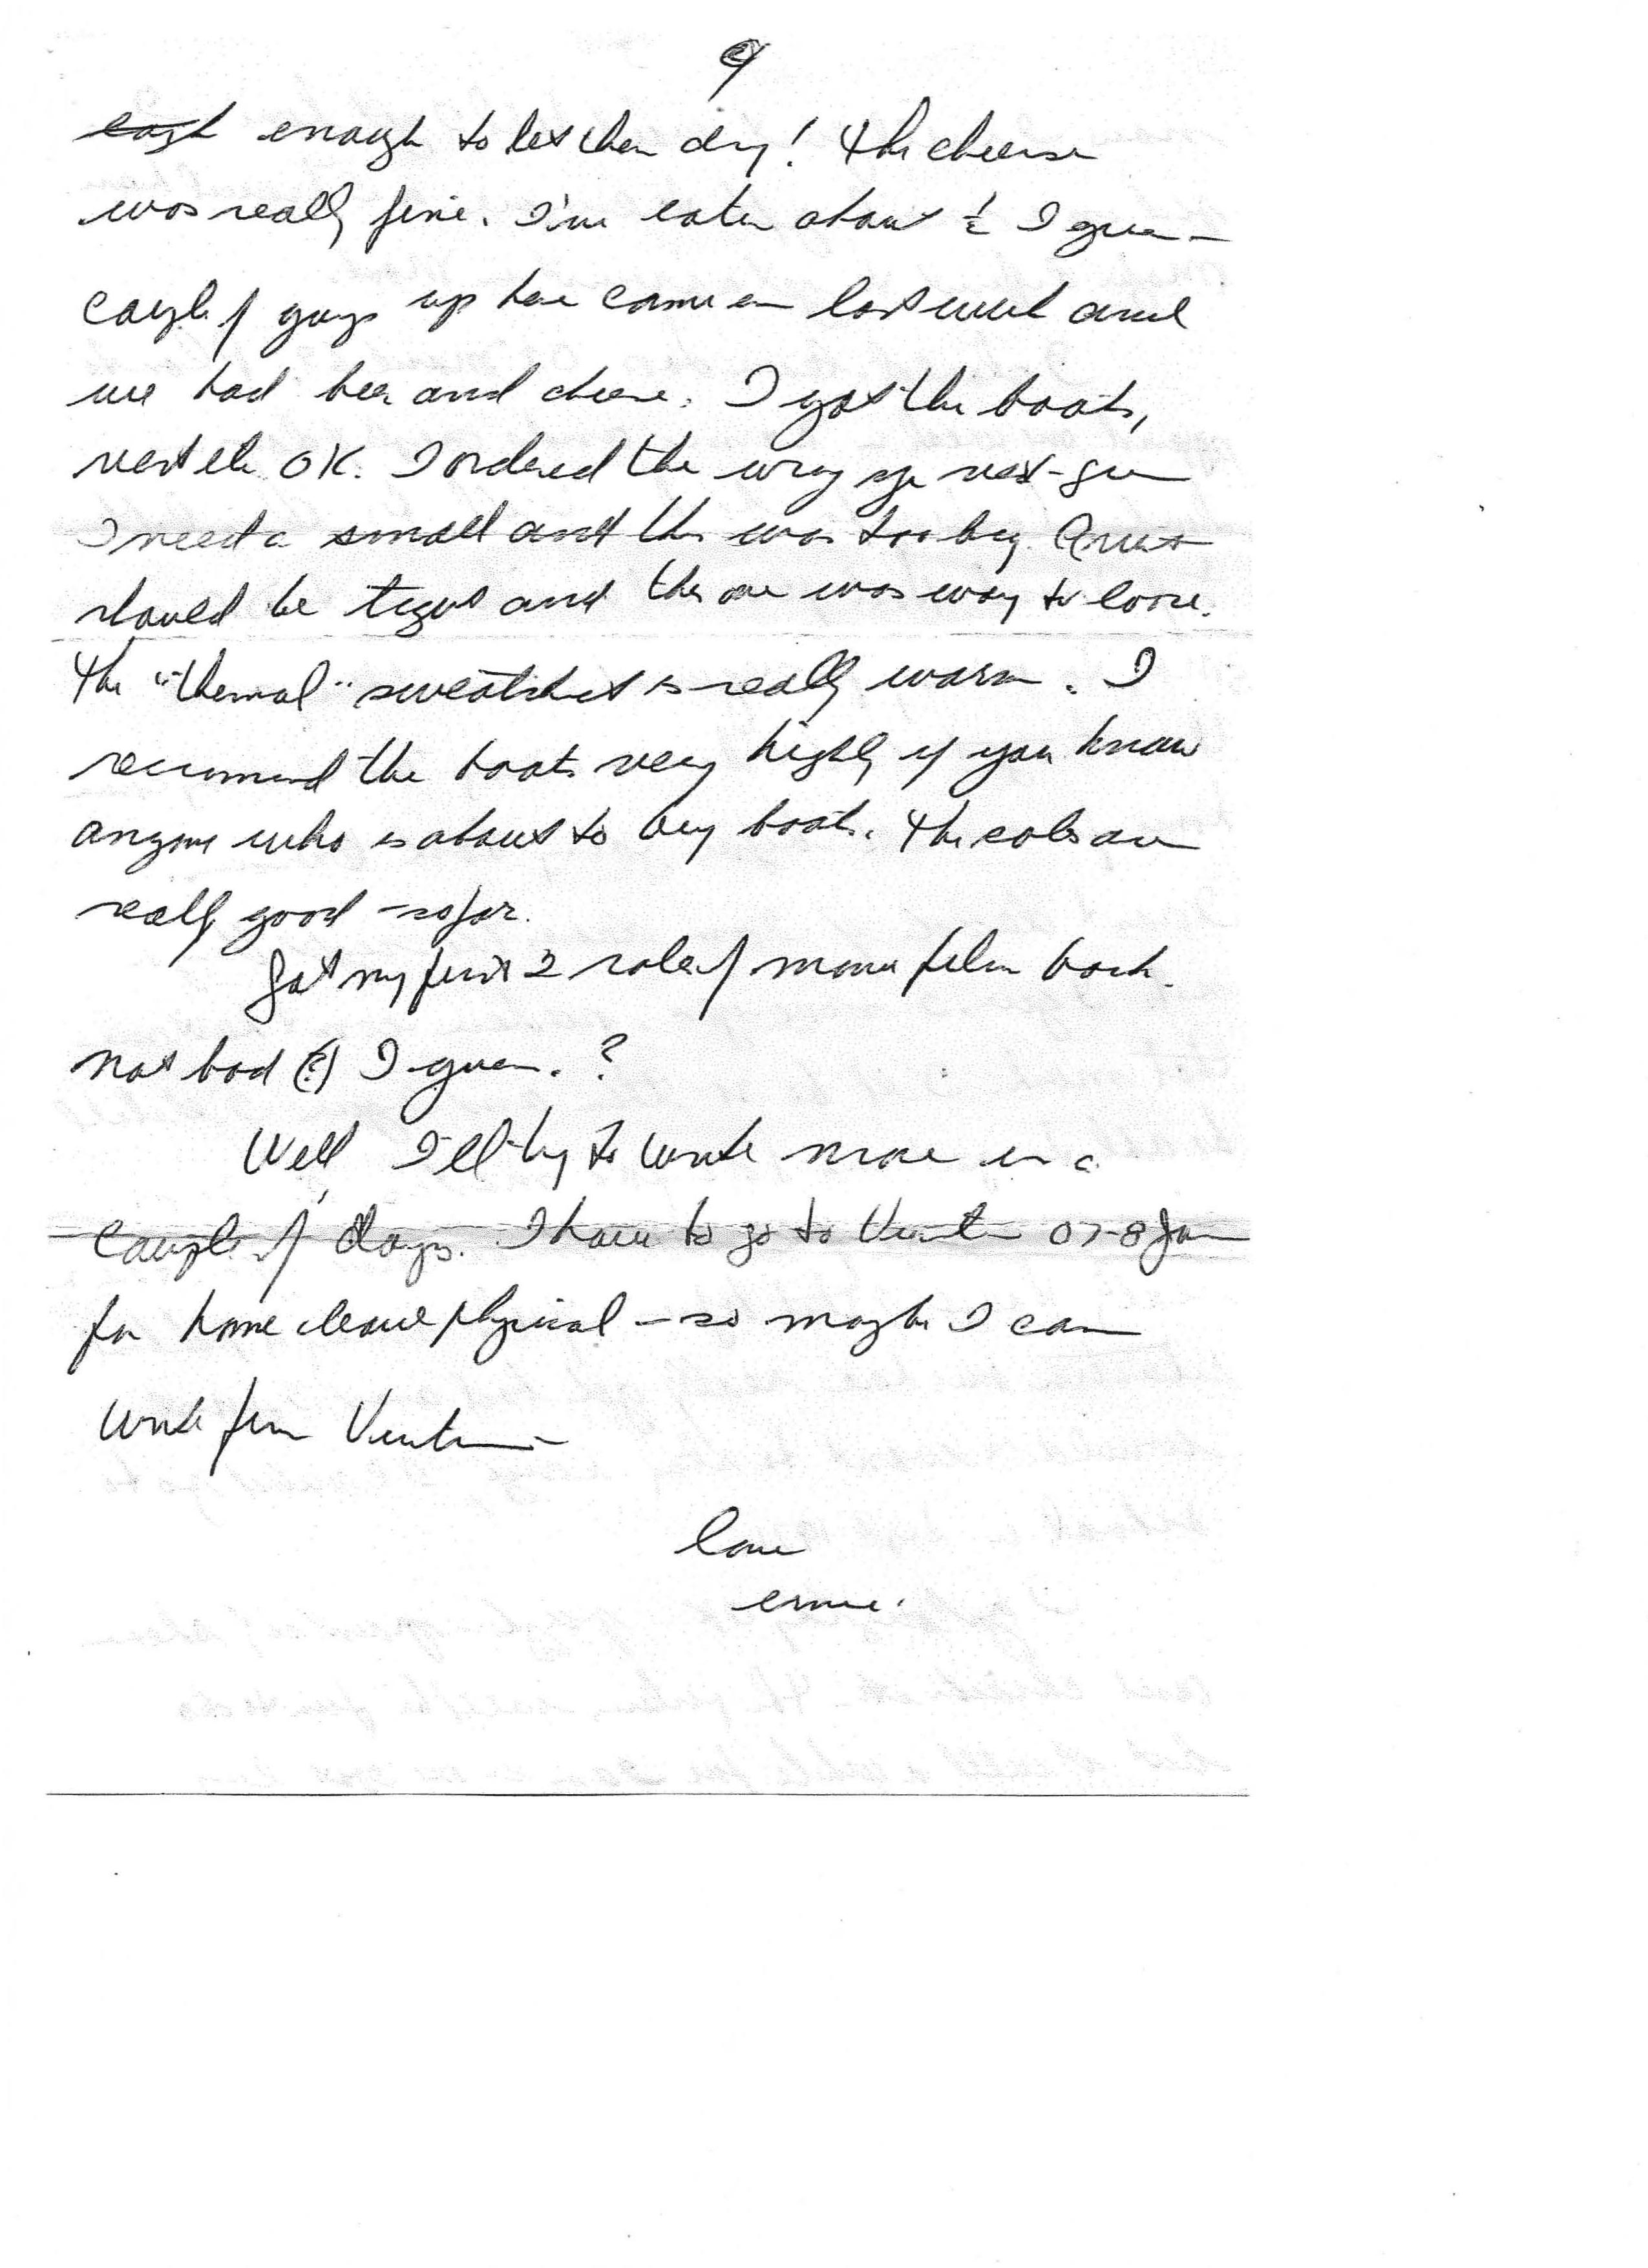 9
enough to let them dry! The cheese
was really fine. I've eaten about ½ I guess –
couple of guys up here came in last week and
we had beer and cheese. I got the boots,
vest etc OK. I ordered the wrong size vest – guess
I need a small and this was too big. A vest
should be tight and this one was way to loose.
The "thermal" sweatshirt is really warm. I
recommend the boots very highly if you know
anyone who is about to buy boots. The soles are
really good – so far.
Got my first 2 roles of movie film back.
not bad (?) I guess. ?
Well, I'll try to write more in a
couple of days. I have to go to 07-8 Jan
for home leave physical – so maybe I can
write from
love
ernie.